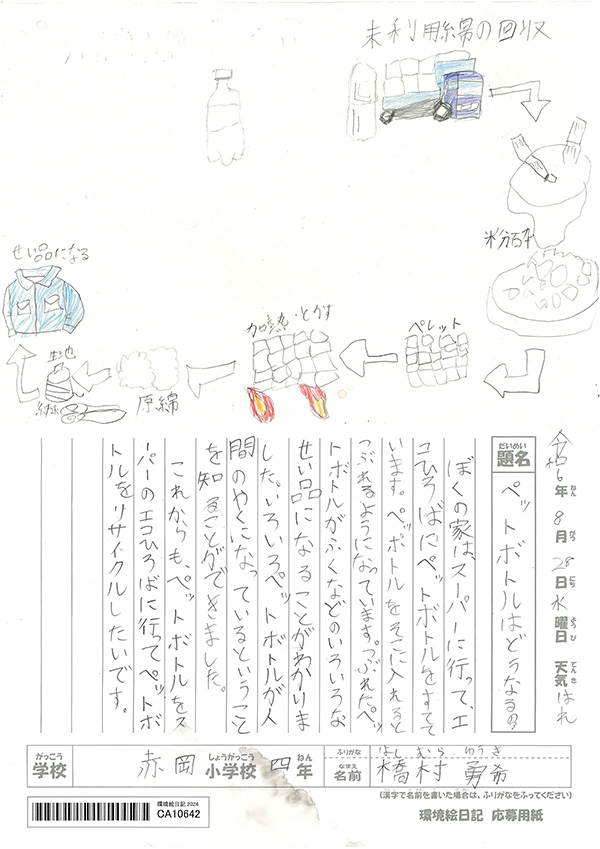 未利用綿の回収
粉砕
ペレット
加熱・とかす
原綿
生地
せい品になる
令和6年8月28日水曜日天気はれ
ねん
がつ
にち
ようび
てんき
だいめい
題名
ペットボトルはどうなるの?
ぼくの家は、スーパーに行って、エ
コひろばにペットボトルをすてて
います。ペッボトルをそこに入れると
つぶれるようになっています。つぶれたペッ
トボトルがふくなどのいろいろな
せい品になることがわかりま
した。いろいろペットボトルが人
間のやくになっているということ
を知ることができました。
これからも、ペットボトルをス
ーパーのエコひろばに行ってペットボ
トルをリサイクルしたいです。
がっこう
学校
赤岡
しょうがっこう
小学校
四
ねん
年
ふりがな
はしむらゆうき
なまえ
名前
橋村勇希
(漢字で名前を書いた場合は、ふりがなをふってください)
環境絵日記 2024
CA10642
環境絵日記 応募用紙